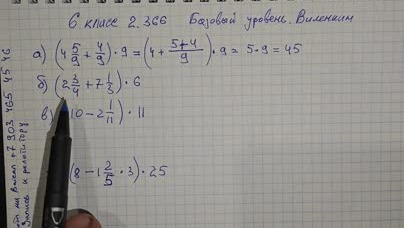 6 класс 2.366 Базовый уровень. Виленкин
а) (4 5/9 + 4/9) · 9 = (4 + (5+4)/9) · 9 = 5 · 9 = 45
б) (2 3/4 + 7 1/3) · 6
в) 10 − 2 1/11) · 11
(8 − 1 2/5 · 3) · 25
Запись к репетитору